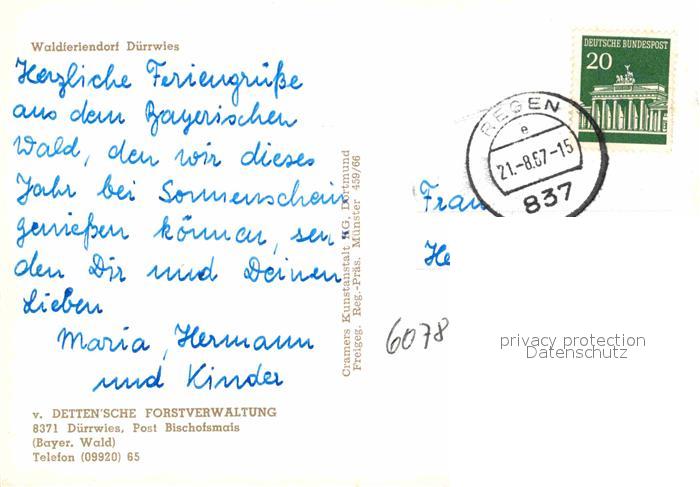 Waldferiendorf Dürrwies
Herzliche Feriengrüße
aus dem Bayerischen
Wald, den wir dieses
Jahr bei Sonnenschein
genießen können, sen
den Dir und Deinen
Lieben
Maria, Hermann
und Kinder
v. DETTEN'SCHE FORSTVERWALTUNG
8371 Dürrwies, Post Bischofsmais
(Bayer. Wald)
Telefon (09920) 65
Cramers Kunstanstalt KG, Dortmund
Freigeg. Reg.-Präs. Münster 459/66
DEUTSCHE BUNDESPOST
20
REGEN
e
21.-8.67-15
837
Frau
He
6078
privacy protection
Datenschutz